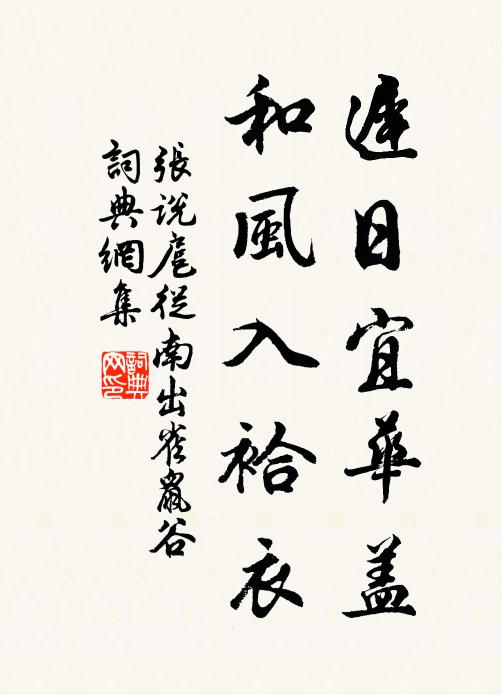 遲日宜華蓋
和風入袷衣
張說扈從南出雀鼠谷
詞典網集
詞典網印